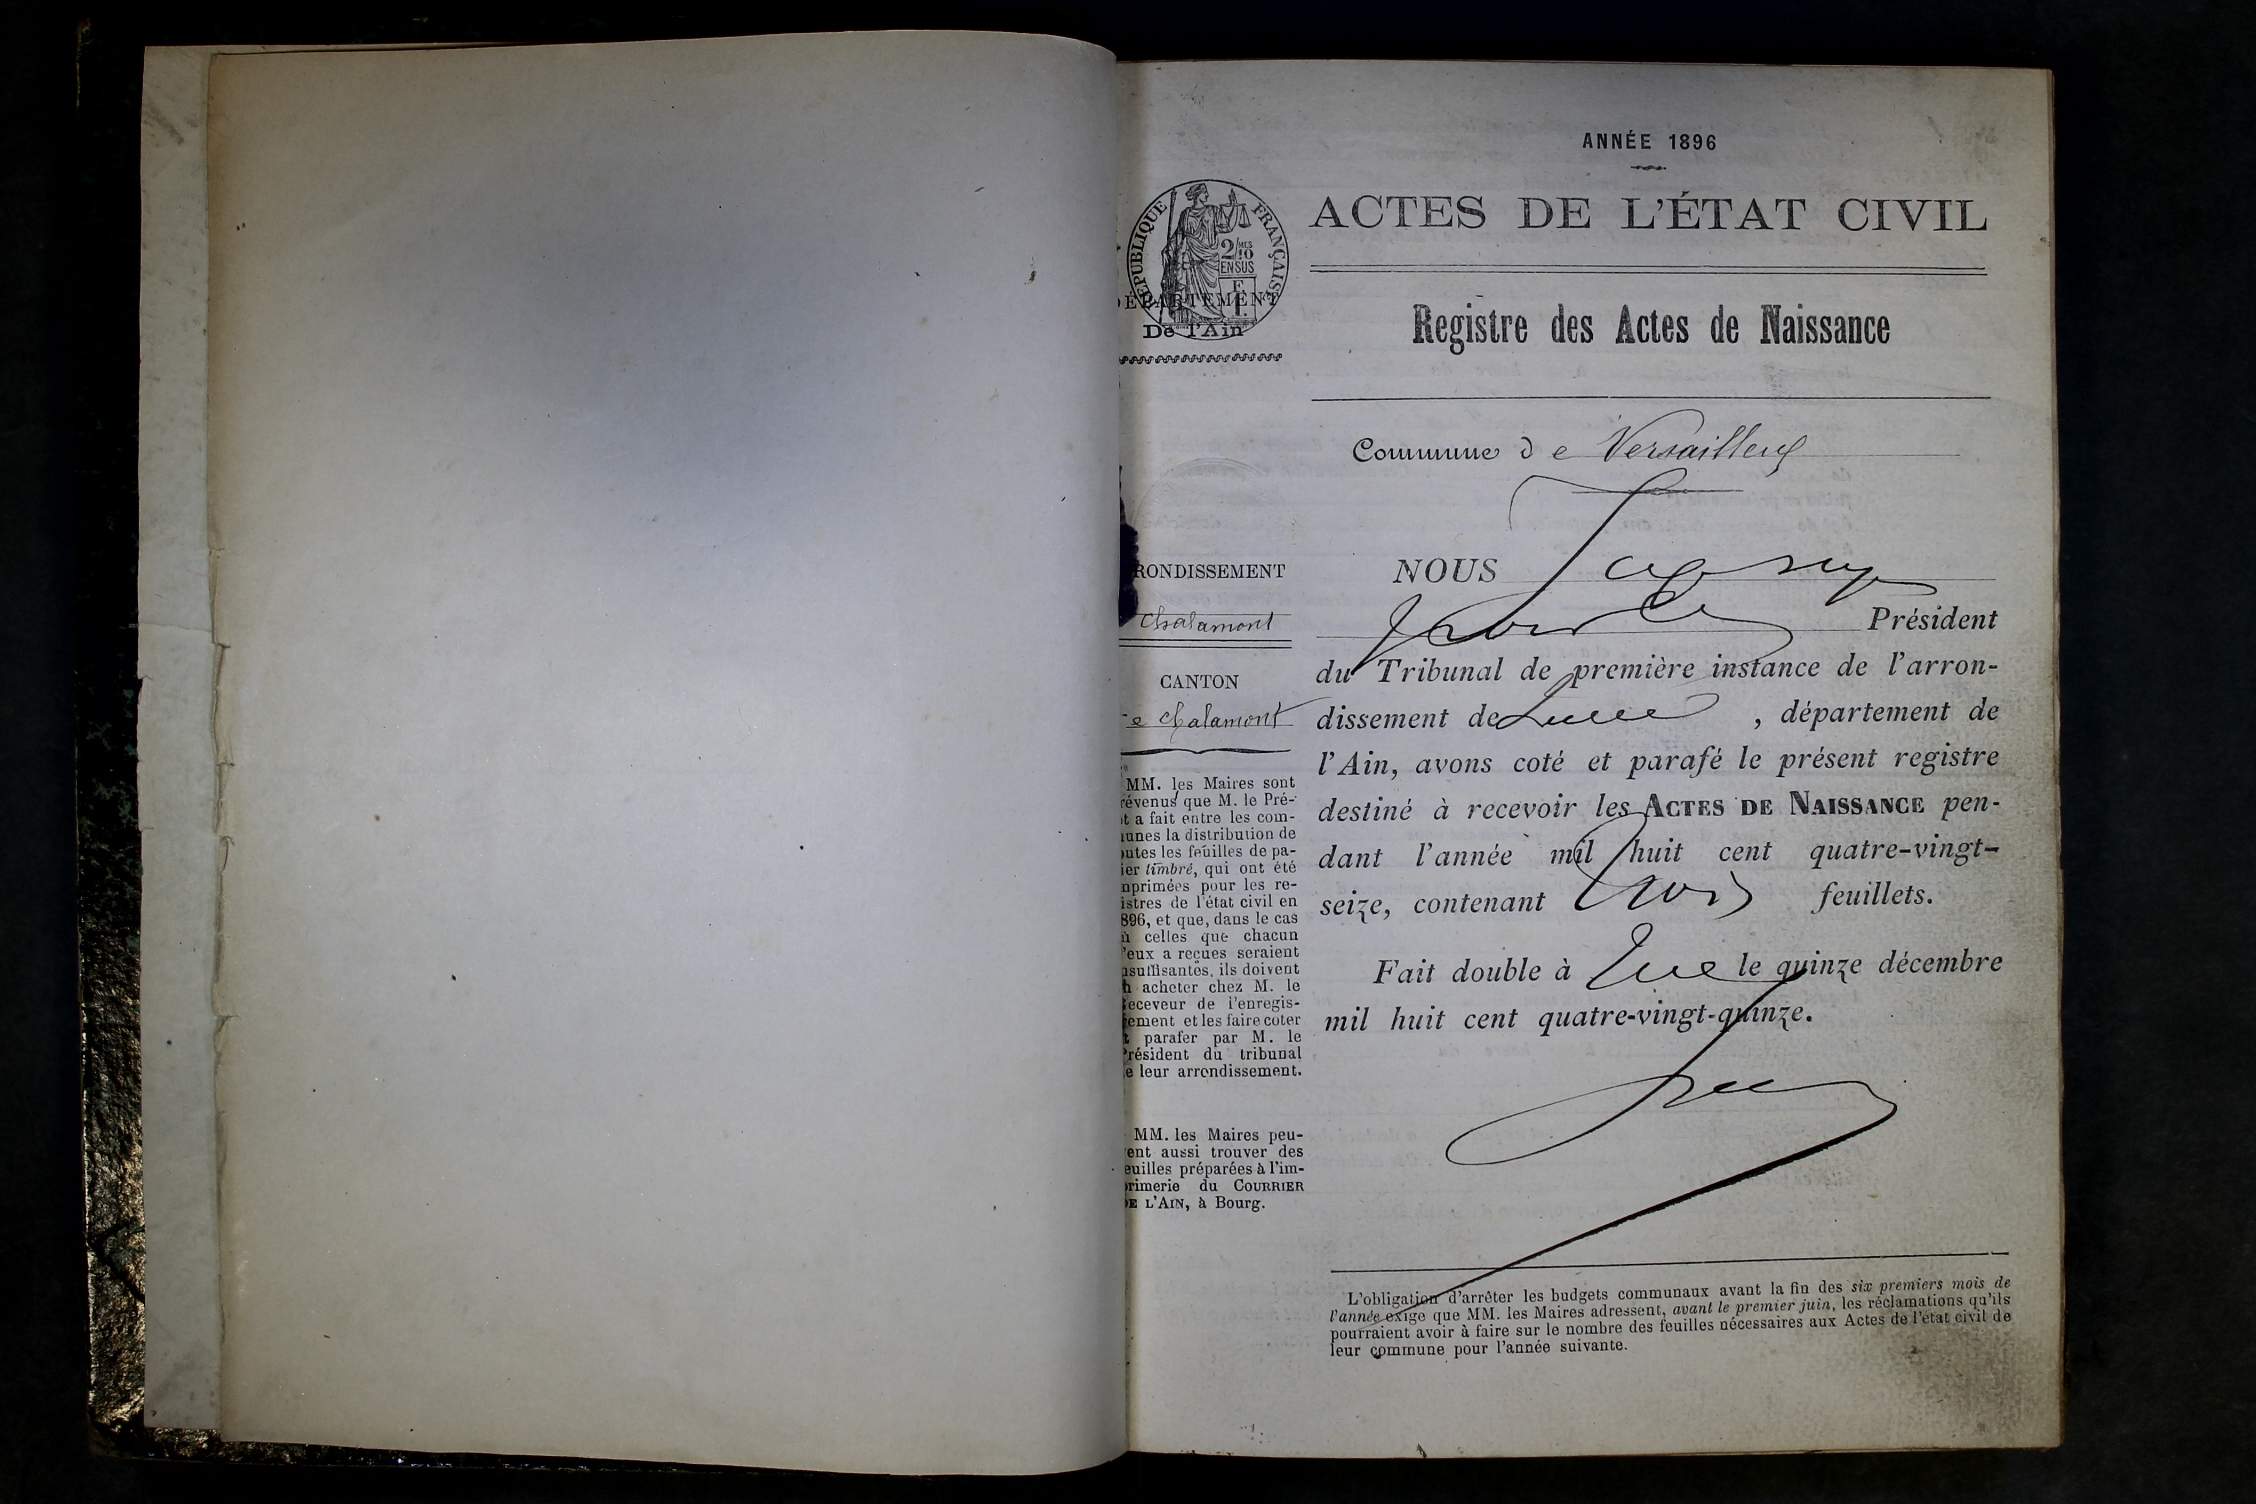 ANNÉE 1896
ACTES DE L'ÉTAT CIVIL
RÉPUBLIQUE FRANÇAISE
2/10 MES
EN SUS
DÉPARTEMENT
De l'Ain
Registre des Actes de Naissance
Commune de Versailleux
RONDISSEMENT
Chalamont
CANTON
e Chalamont
MM. les Maires sont
révenus que M. le Pré-
t a fait entre les com-
unes la distribution de
outes les feuilles de pa-
ier timbré, qui ont été
mprimées pour les re-
istres de l'état civil en
896, et que, dans le cas
ù celles que chacun
'eux a reçues seraient
nsuffisantes, ils doivent
n acheter chez M. le
eceveur de l'enregis-
rement et les faire coter
t parafer par M. le
Président du tribunal
e leur arrondissement.
MM. les Maires peu-
ent aussi trouver des
euilles préparées à l'im-
primerie du COURRIER
DE L'AIN, à Bourg.
NOUS
Président
du Tribunal de première instance de l'arron-
dissement de , département de
l'Ain, avons coté et parafé le présent registre
destiné à recevoir les ACTES DE NAISSANCE pen-
dant l'année mil huit cent quatre-vingt-
seize, contenant trois feuillets.
Fait double à le quinze décembre
mil huit cent quatre-vingt-quinze.
L'obligation d'arrêter les budgets communaux avant la fin des six premiers mois de
l'année exige que MM. les Maires adressent, avant le premier juin, les réclamations qu'ils
pourraient avoir à faire sur le nombre des feuilles nécessaires aux Actes de l'état civil de
leur commune pour l'année suivante.